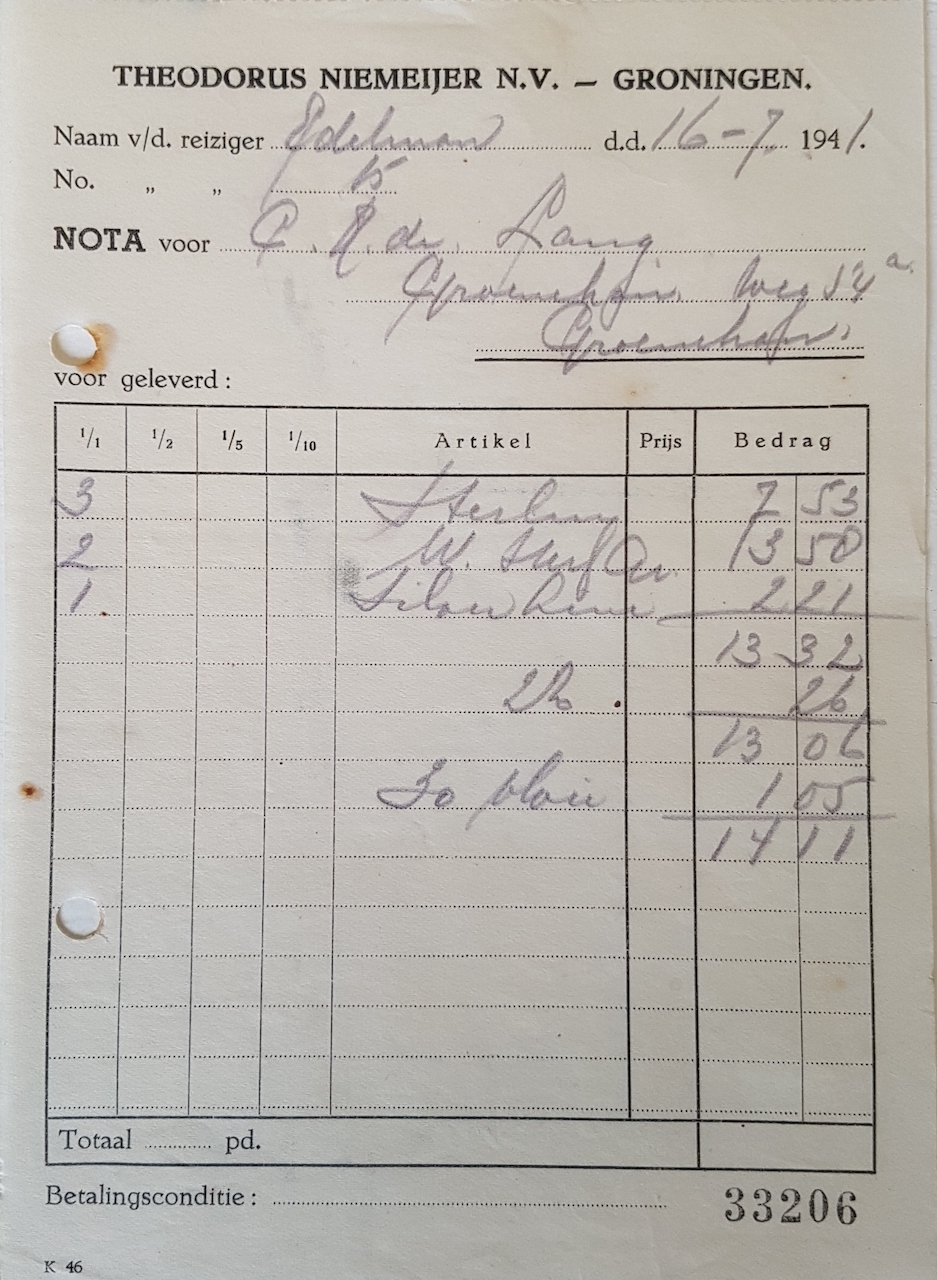 THEODORUS NIEMEIJER N.V. — GRONINGEN.
Naam v/d. reiziger Edelman d.d. 16-7 1941.
No. „ „ 15
NOTA voor C. E. de Lang
weg 12a
voor geleverd :
1/1 1/2 1/5 1/10 Artikel Prijs Bedrag
3 Sterling 7 53
2 W. 
1 Silver 2 21
13 32
2% 26
13 06
1 05
14 11
Totaal ............ pd.
Betalingsconditie : 33206
K 46